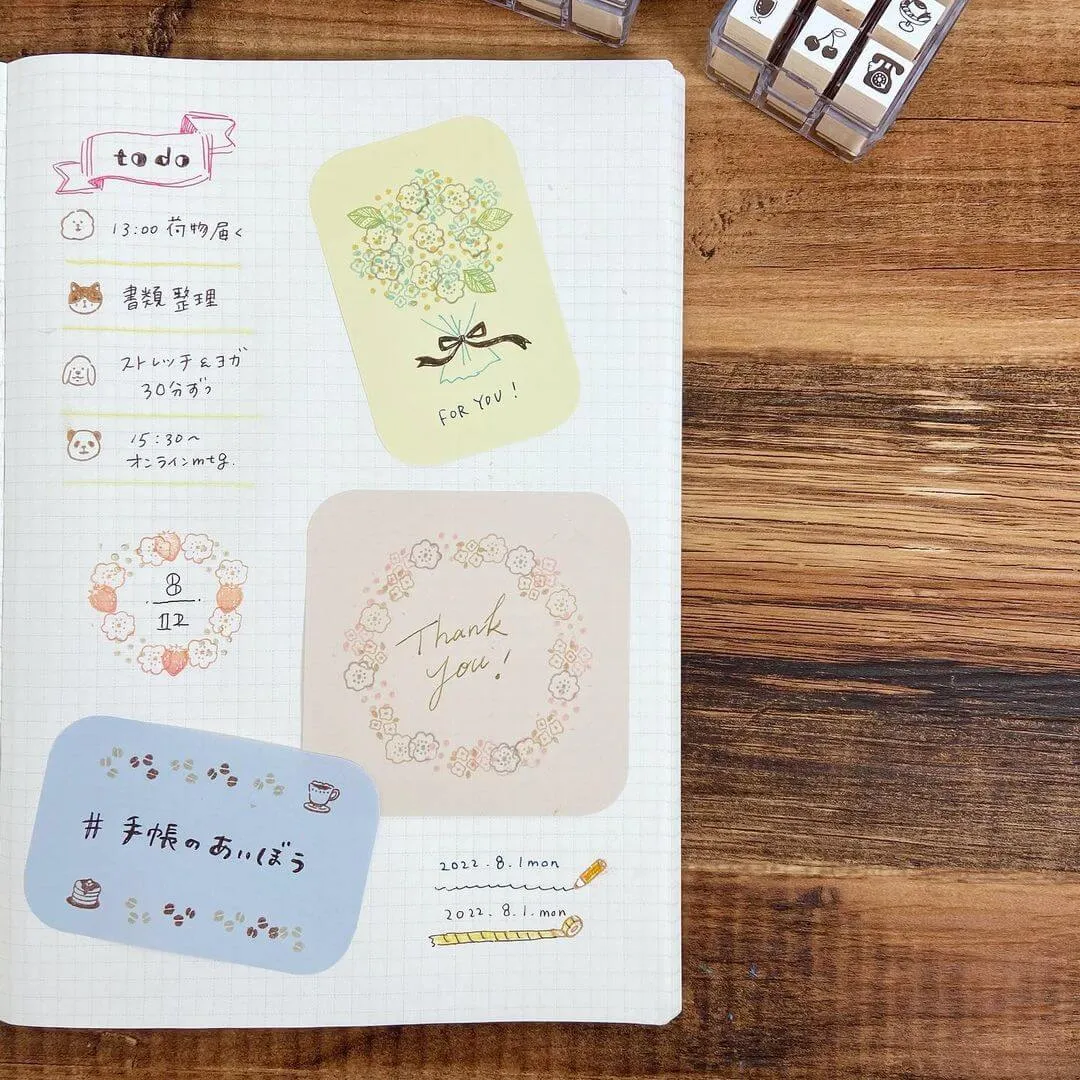 to do
13:00 荷物届く
書類整理
ストレッチ&ヨガ
30分ずつ
15:30〜
オンラインmtg.
8
12
# 手帳のあいぼう
FOR YOU!
Thank
you!
2022.8.1mon
2022.8.1.mon